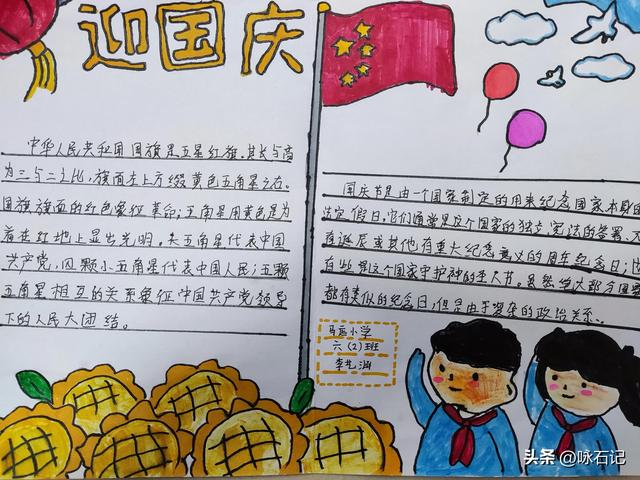 迎国庆
中华人民共和国国旗是五星红旗,其长与高
为三与二之比,旗面左上方缀黄色五角星之右。
国旗旗面的红色象征革命;五角星用黄色是为
着在红地上显出光明。大五角星代表中国
共产党,四颗小五角星代表中国人民;五颗
五角星相互的关系象征中国共产党领导
下的人民大团结。
国庆节是由一个国家制定的用来纪念国家本身的
法定假日,它们通常是这个国家的独立、宪法的签署、
有诞辰或其他有重大纪念意义的周年纪念日;
有些是这个国家守护神的圣人节。虽然绝大部分国家
都有类似的纪念日,但是由于复杂的政治关系.
小学
六(2)班
李
头条 @咏石记